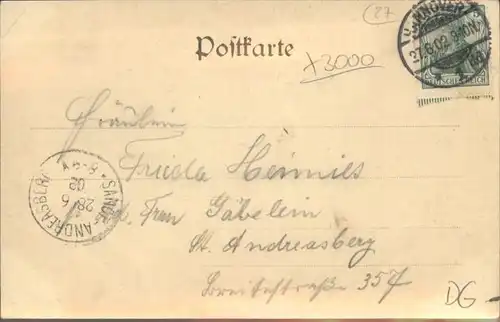 27
Postkarte
x3000
HANNOVER
27.6.02. 9-10N.
DEUTSCHES REICH
Fräulein
Frieda Heimies
Frau Gäbelein
St. Andreasberg
Breitestraße 357
SANCT ANDREASBERG
28 6
02
8-9V
DG